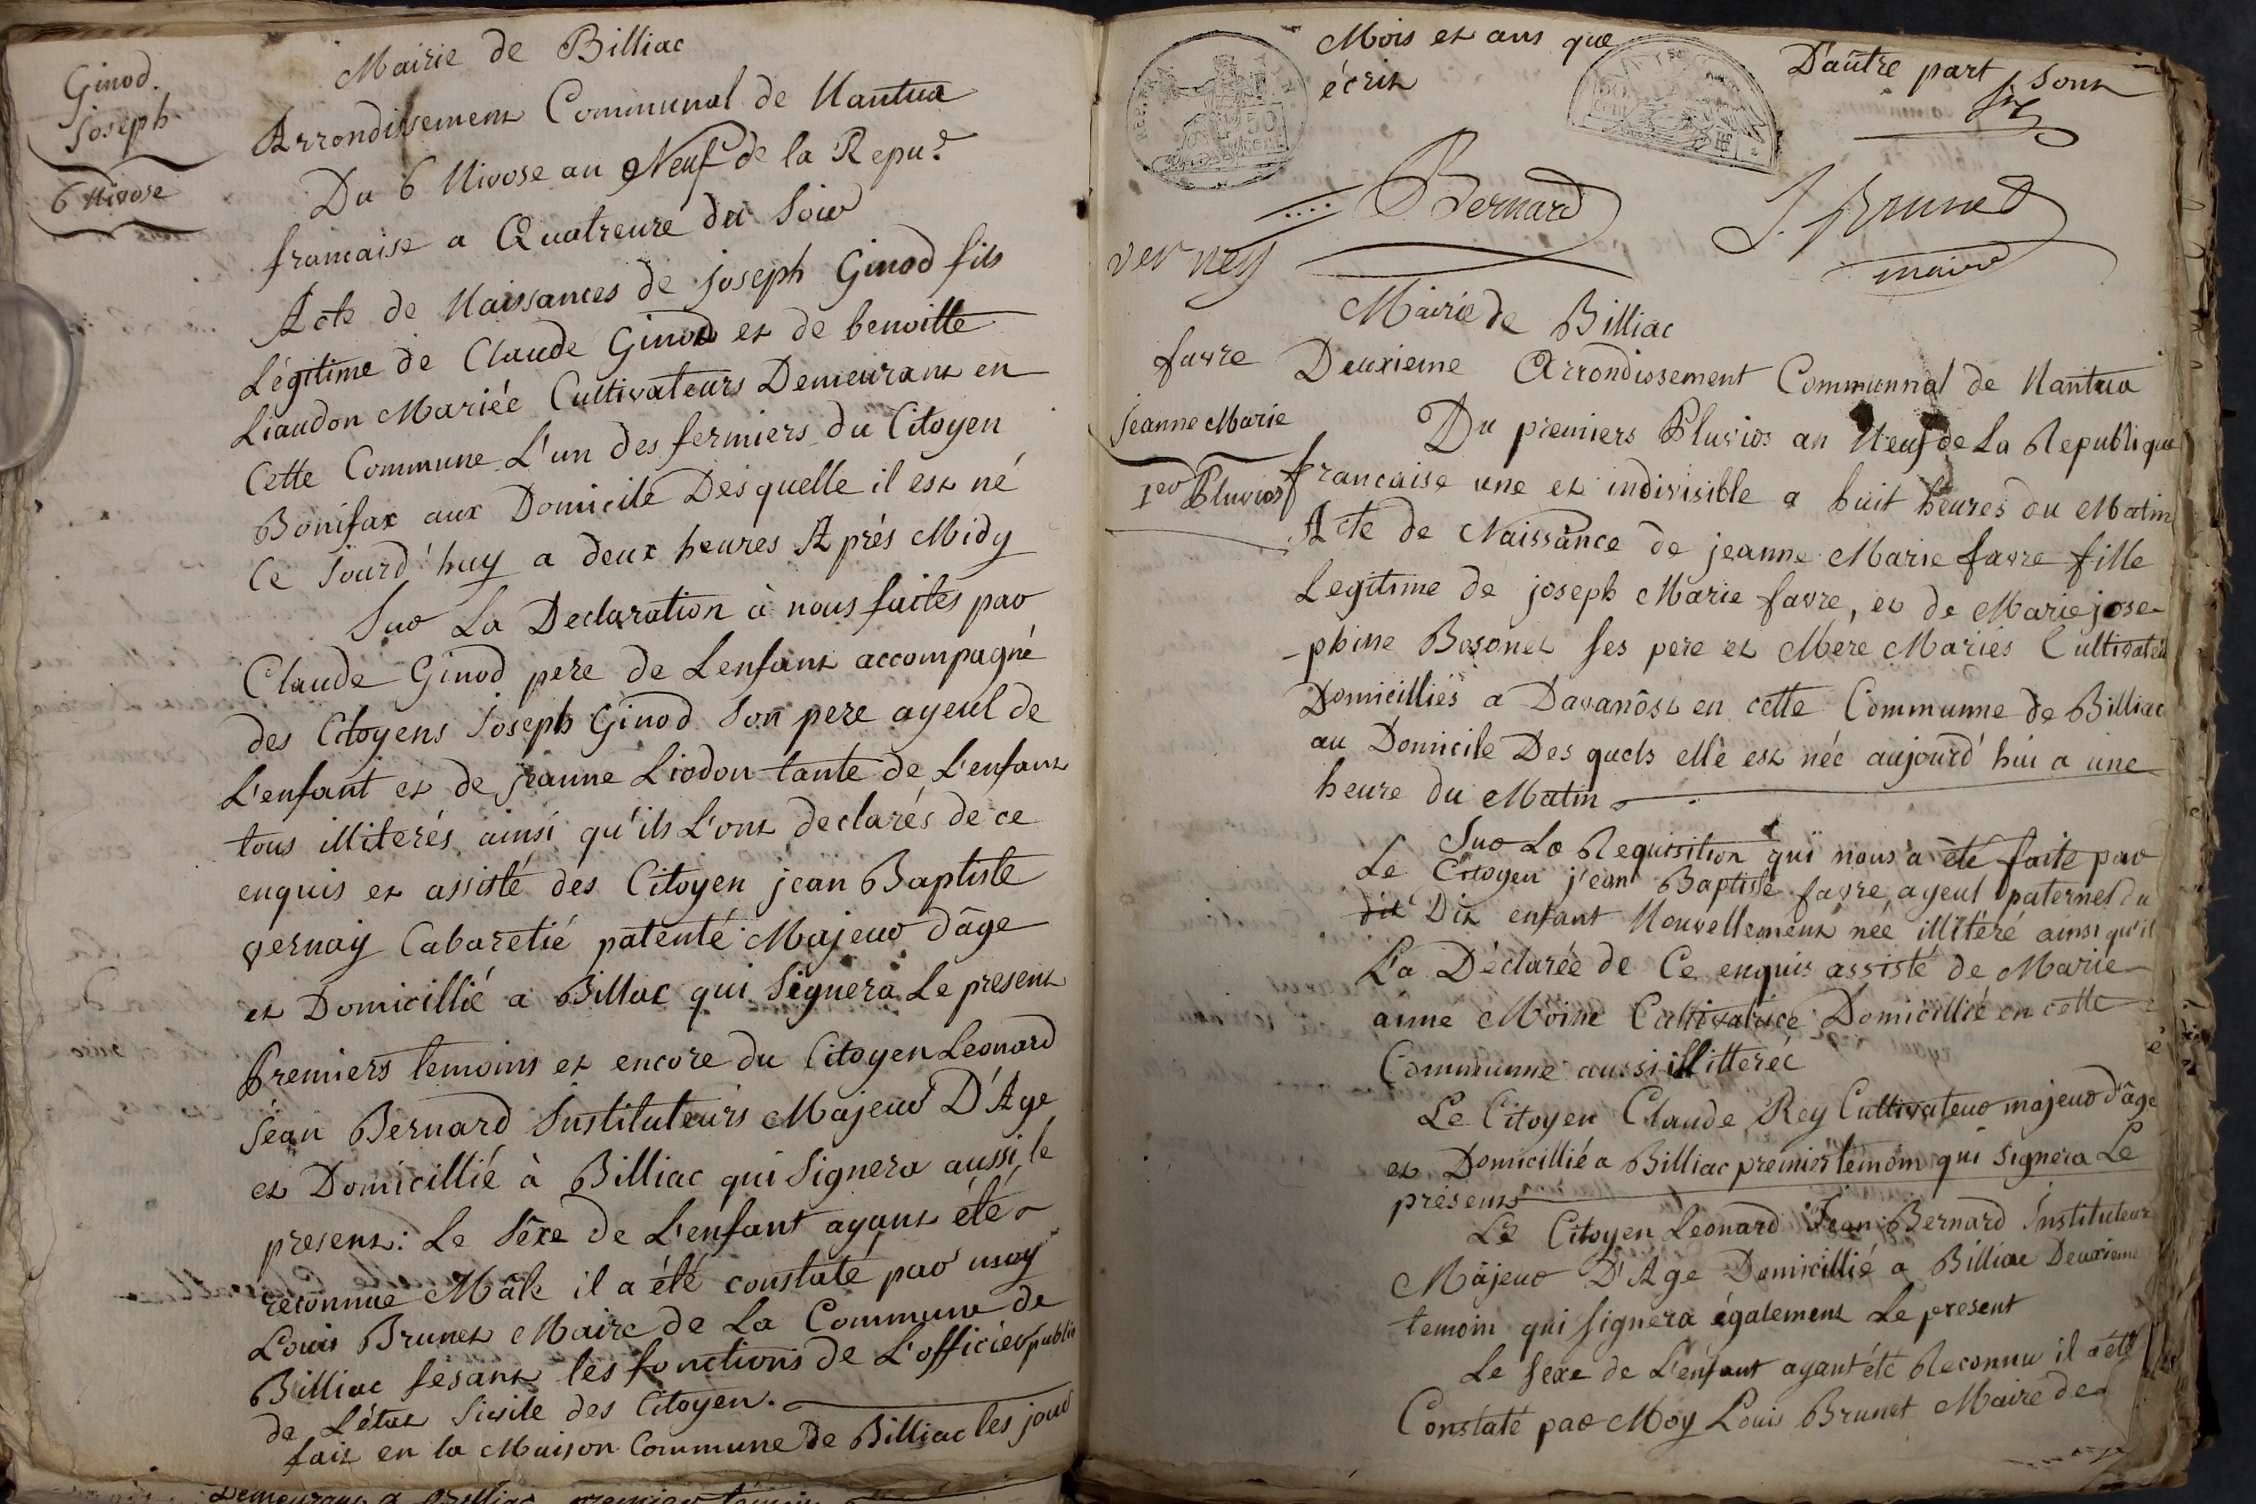 Ginod.
Joseph
6 Nivose
Mairie de Billiac
Arrondissement Communal de Nantua
Du 6 Nivose an Neuf de la Repu.e
francaise a Quatreure du Soir
Acte de Naissances de joseph Ginod fils
Légitime de Claude Ginod et de benoitte
Liaudon Mariéé Cultivateurs Demeurant en
Cette Commune L'un des fermiers du Citoyen
Bonifax aux Domicile Desquelle il est né
Ce Jourd'huy a deux heures Aprés Midy
Sur La Declaration à nous faites par
Claude Ginod pere de Lenfant accompagné
des Citoyens Joseph Ginod Son pere ayeul de
L'enfant et de jeanne Liodon tante de L'enfant
tous illiterés ainsi qu'ils L'ont declarés de ce
enquis et assisté des Citoyen jean Baptiste
vernay Cabaretié patenté Majeur d'âge
et Domicillié a Billac qui Signera Le present
Premiers temoins et encore du Citoyen Leonard
Jéan Bernard Instituteurs Majeur D'Age
et Domicillié à Billiac qui Signera aussi le
present: Le Sêxe de L'enfant ayant été
réconnue Mâle il a été constaté par moy
Louis Brunet Maire de La Commune de
Billiac fesant les fonctions de L'officier public
de L'état Sivile des Citoyen.
fait en la Maison Commune de Billiac les jour
Demeurant a Billiac premier temoin
Mois et ans que D'aûtre part Sont
écrit
50
Bernard
J. Brunet
verney
maire
Mairie de Billiac
favre
jeanne Marie
1er Pluvios
Deuxieme Arrondissement Communnal de Nantua
Du premiers Pluvios an Neuf de La Republique
francaise une et indivisible a huit heures du Matin
Acte de Naissance de jeanne Marie favre fille
Legitime de joseph Marie favre, et de Marie jose-
-phine Bosonet ses pere et Mére Mariés Cultivateu
Domicilliés a Davanôst en cette Communne de Billiac
au Domicile Des quels elle est née aujourd'hui a une
heure du Matin
Sur La Requisition qui nous a été faite par
Le Citoyen jean Baptiste favre ayeul paternel du
dit Dit enfant Nouvellement née illitéré ainsi qu'il
L'a Déclarée de Ce enquis assisté de Marie
anne Moine Cultivatrice Domicillié en cette
Communne aussi illitteréé
Le Citoyen Claude Rey Cultivateur majeur d'âge
et Domicillié a Billiac premier temoin qui signera Le
présent
Le Citoyen Leonard Jean Bernard Instituteur
Mâjeur D'Age Domicillié a Billiac Deuxieme
temoin qui signera également Le present
Le sexe de L'enfant ayant été Reconnu il a été
Constaté par Moy Louis Brunet Maire de